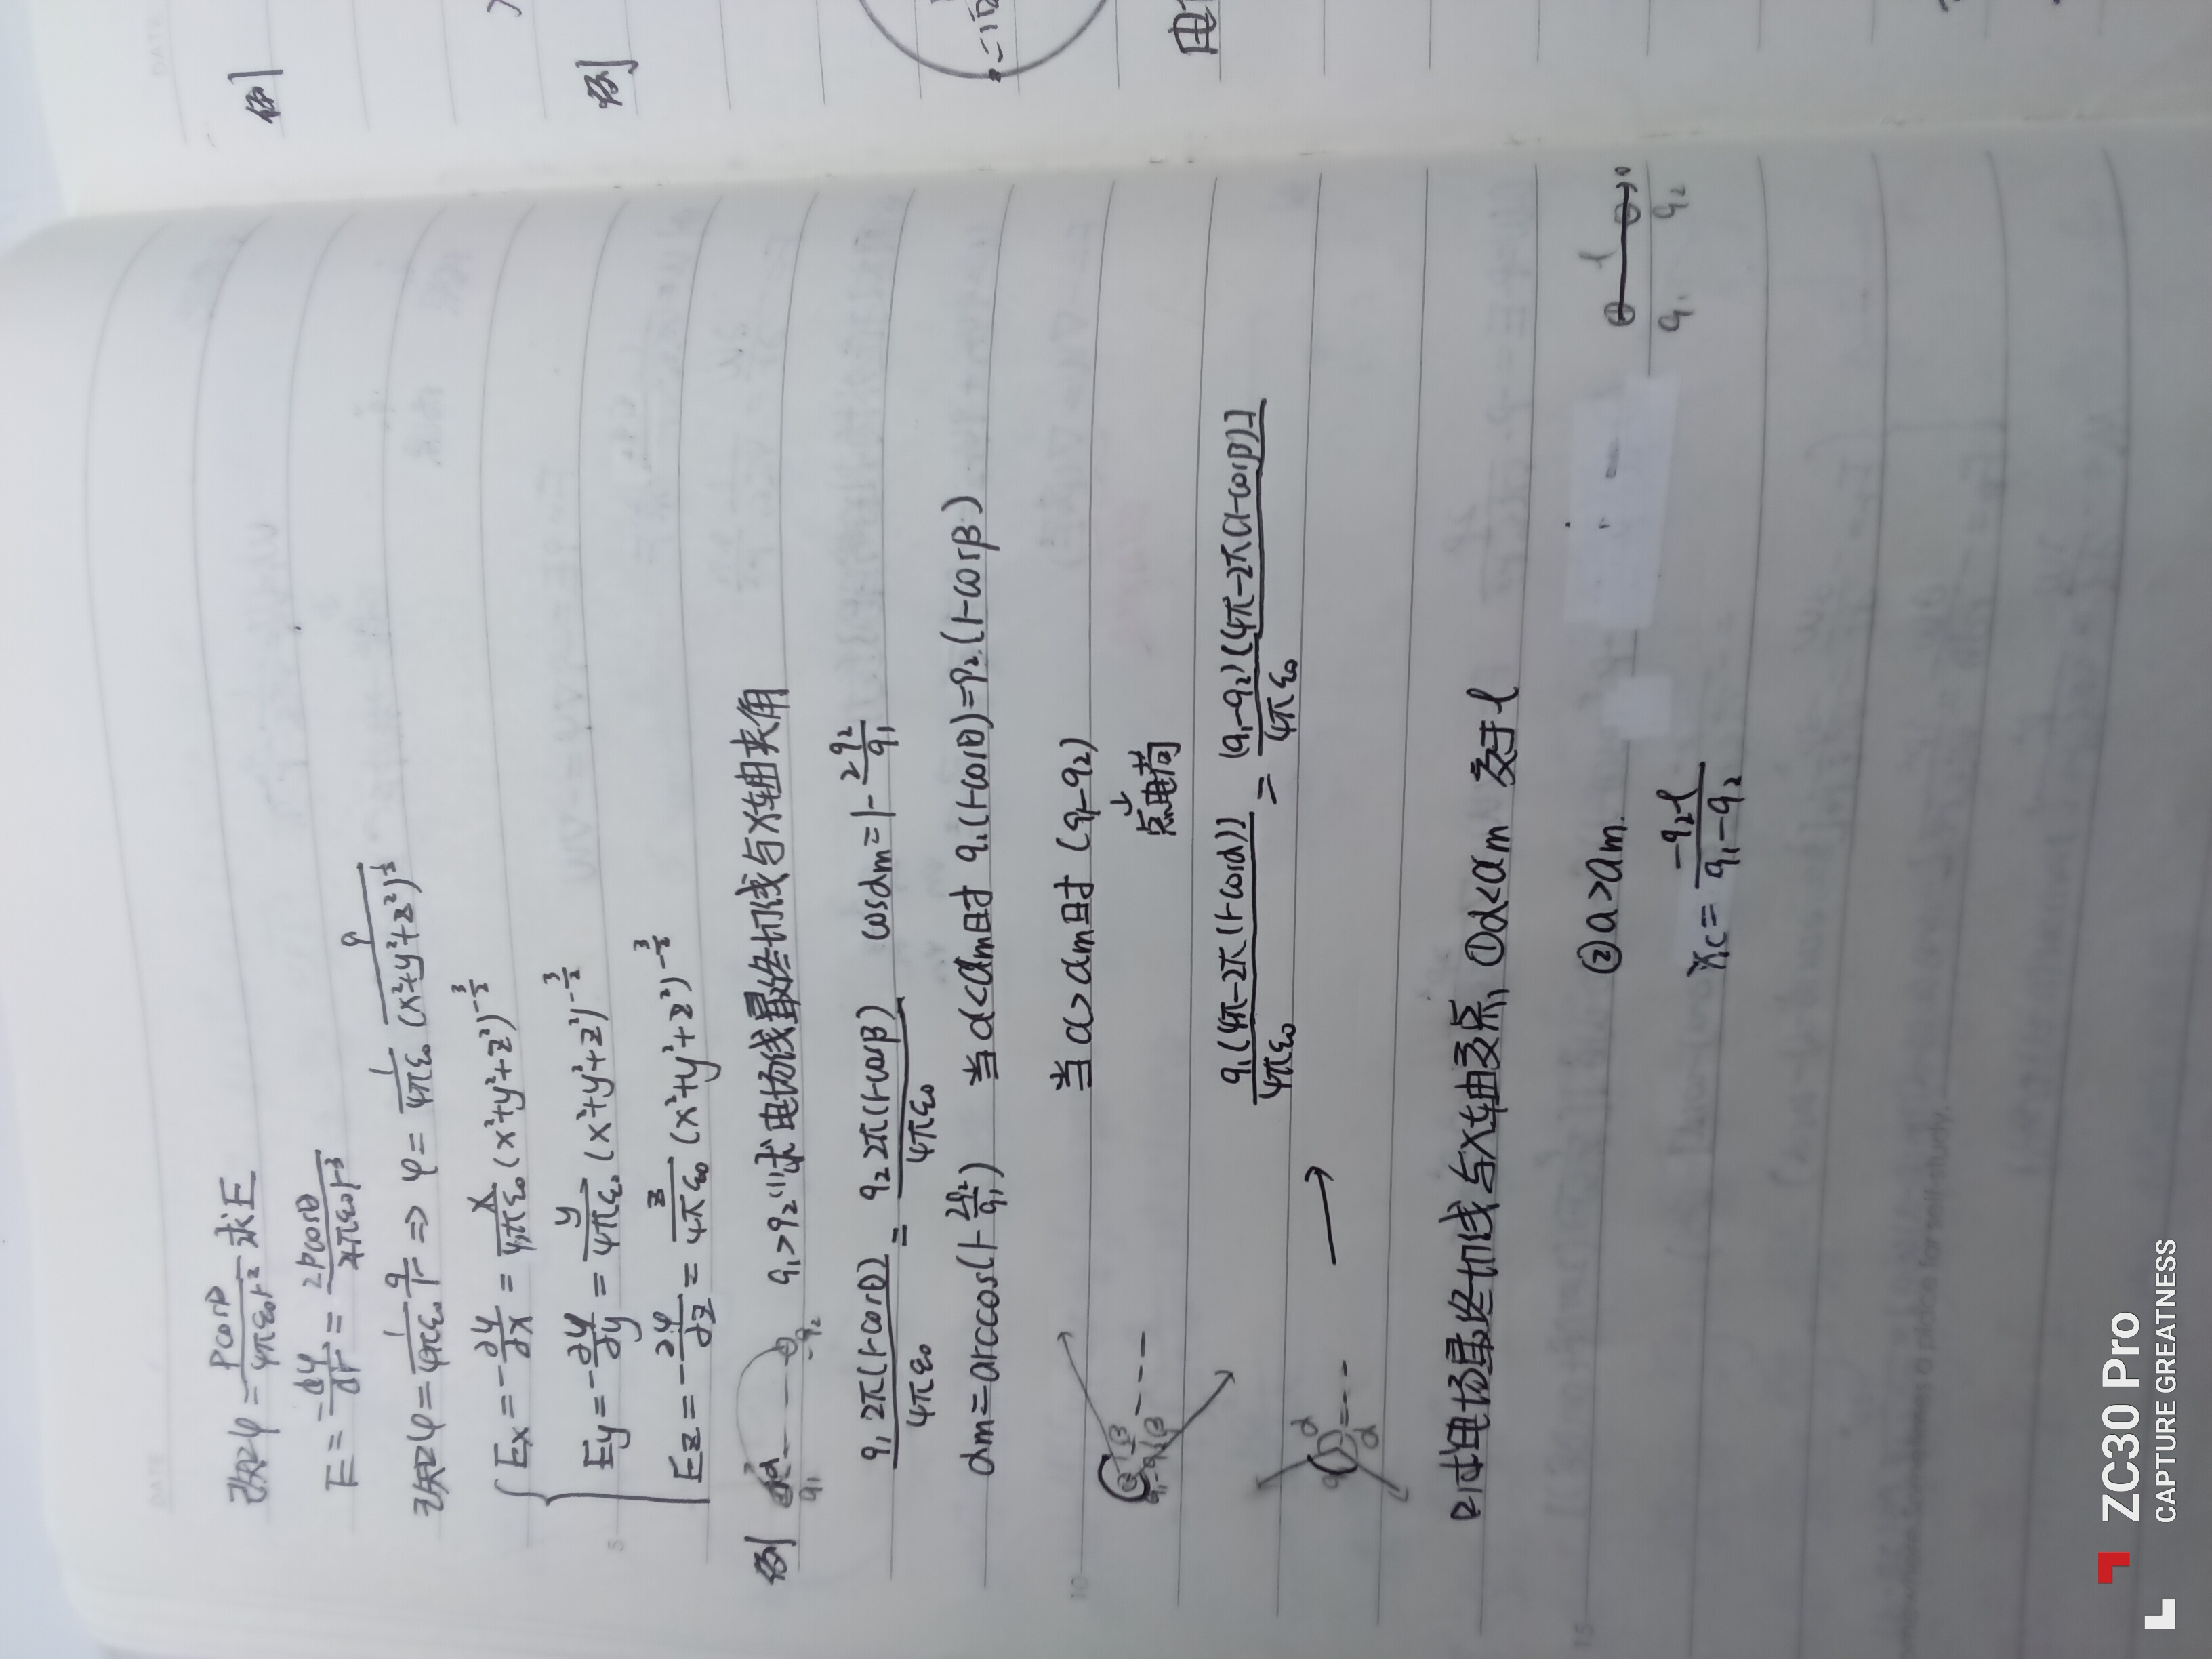 已知φ=Pcosθ/4πε₀r² 求E
E=-dφ/dr=2Pcosθ/4πε₀r³
已知φ=1/4πε₀ q/r ⇒ φ=1/4πε₀ q/(x²+y²+z²)^½
Ex=-∂φ/∂x=x/4πε₀(x²+y²+z²)^-3/2
Ey=-∂φ/∂y=y/4πε₀(x²+y²+z²)^-3/2
Ez=-∂φ/∂z=z/4πε₀(x²+y²+z²)^-3/2
例 α q₁ -q₂ q₁>q₂ (1)求电场线最终切线与x轴夹角
q₁2π(1-cosθ)/4πε₀=q₂2π(1-cosβ)/4πε₀ cosαm=1-2q₂/q₁
αm=arccos(1-2q₂/q₁) 当α<αm时 q₁(1-cosθ)=q₂(1-cosβ)
当α>αm时(q₁-q₂)
β q₁-q₂ β ↓
点电荷
→ q₁(4π-2π(1-cosα))/4πε₀=(q₁-q₂)(4π-2π(1-cosβ))/4πε₀
α
α
(2)求电场最终切线与x轴交点 ①α<αm 交于l
②α>αm
l
q₁ q₂
xc=-q₂l/q₁-q₂
例
例
DATE
DATE
5
10
15
ZC30 Pro
CAPTURE GREATNESS